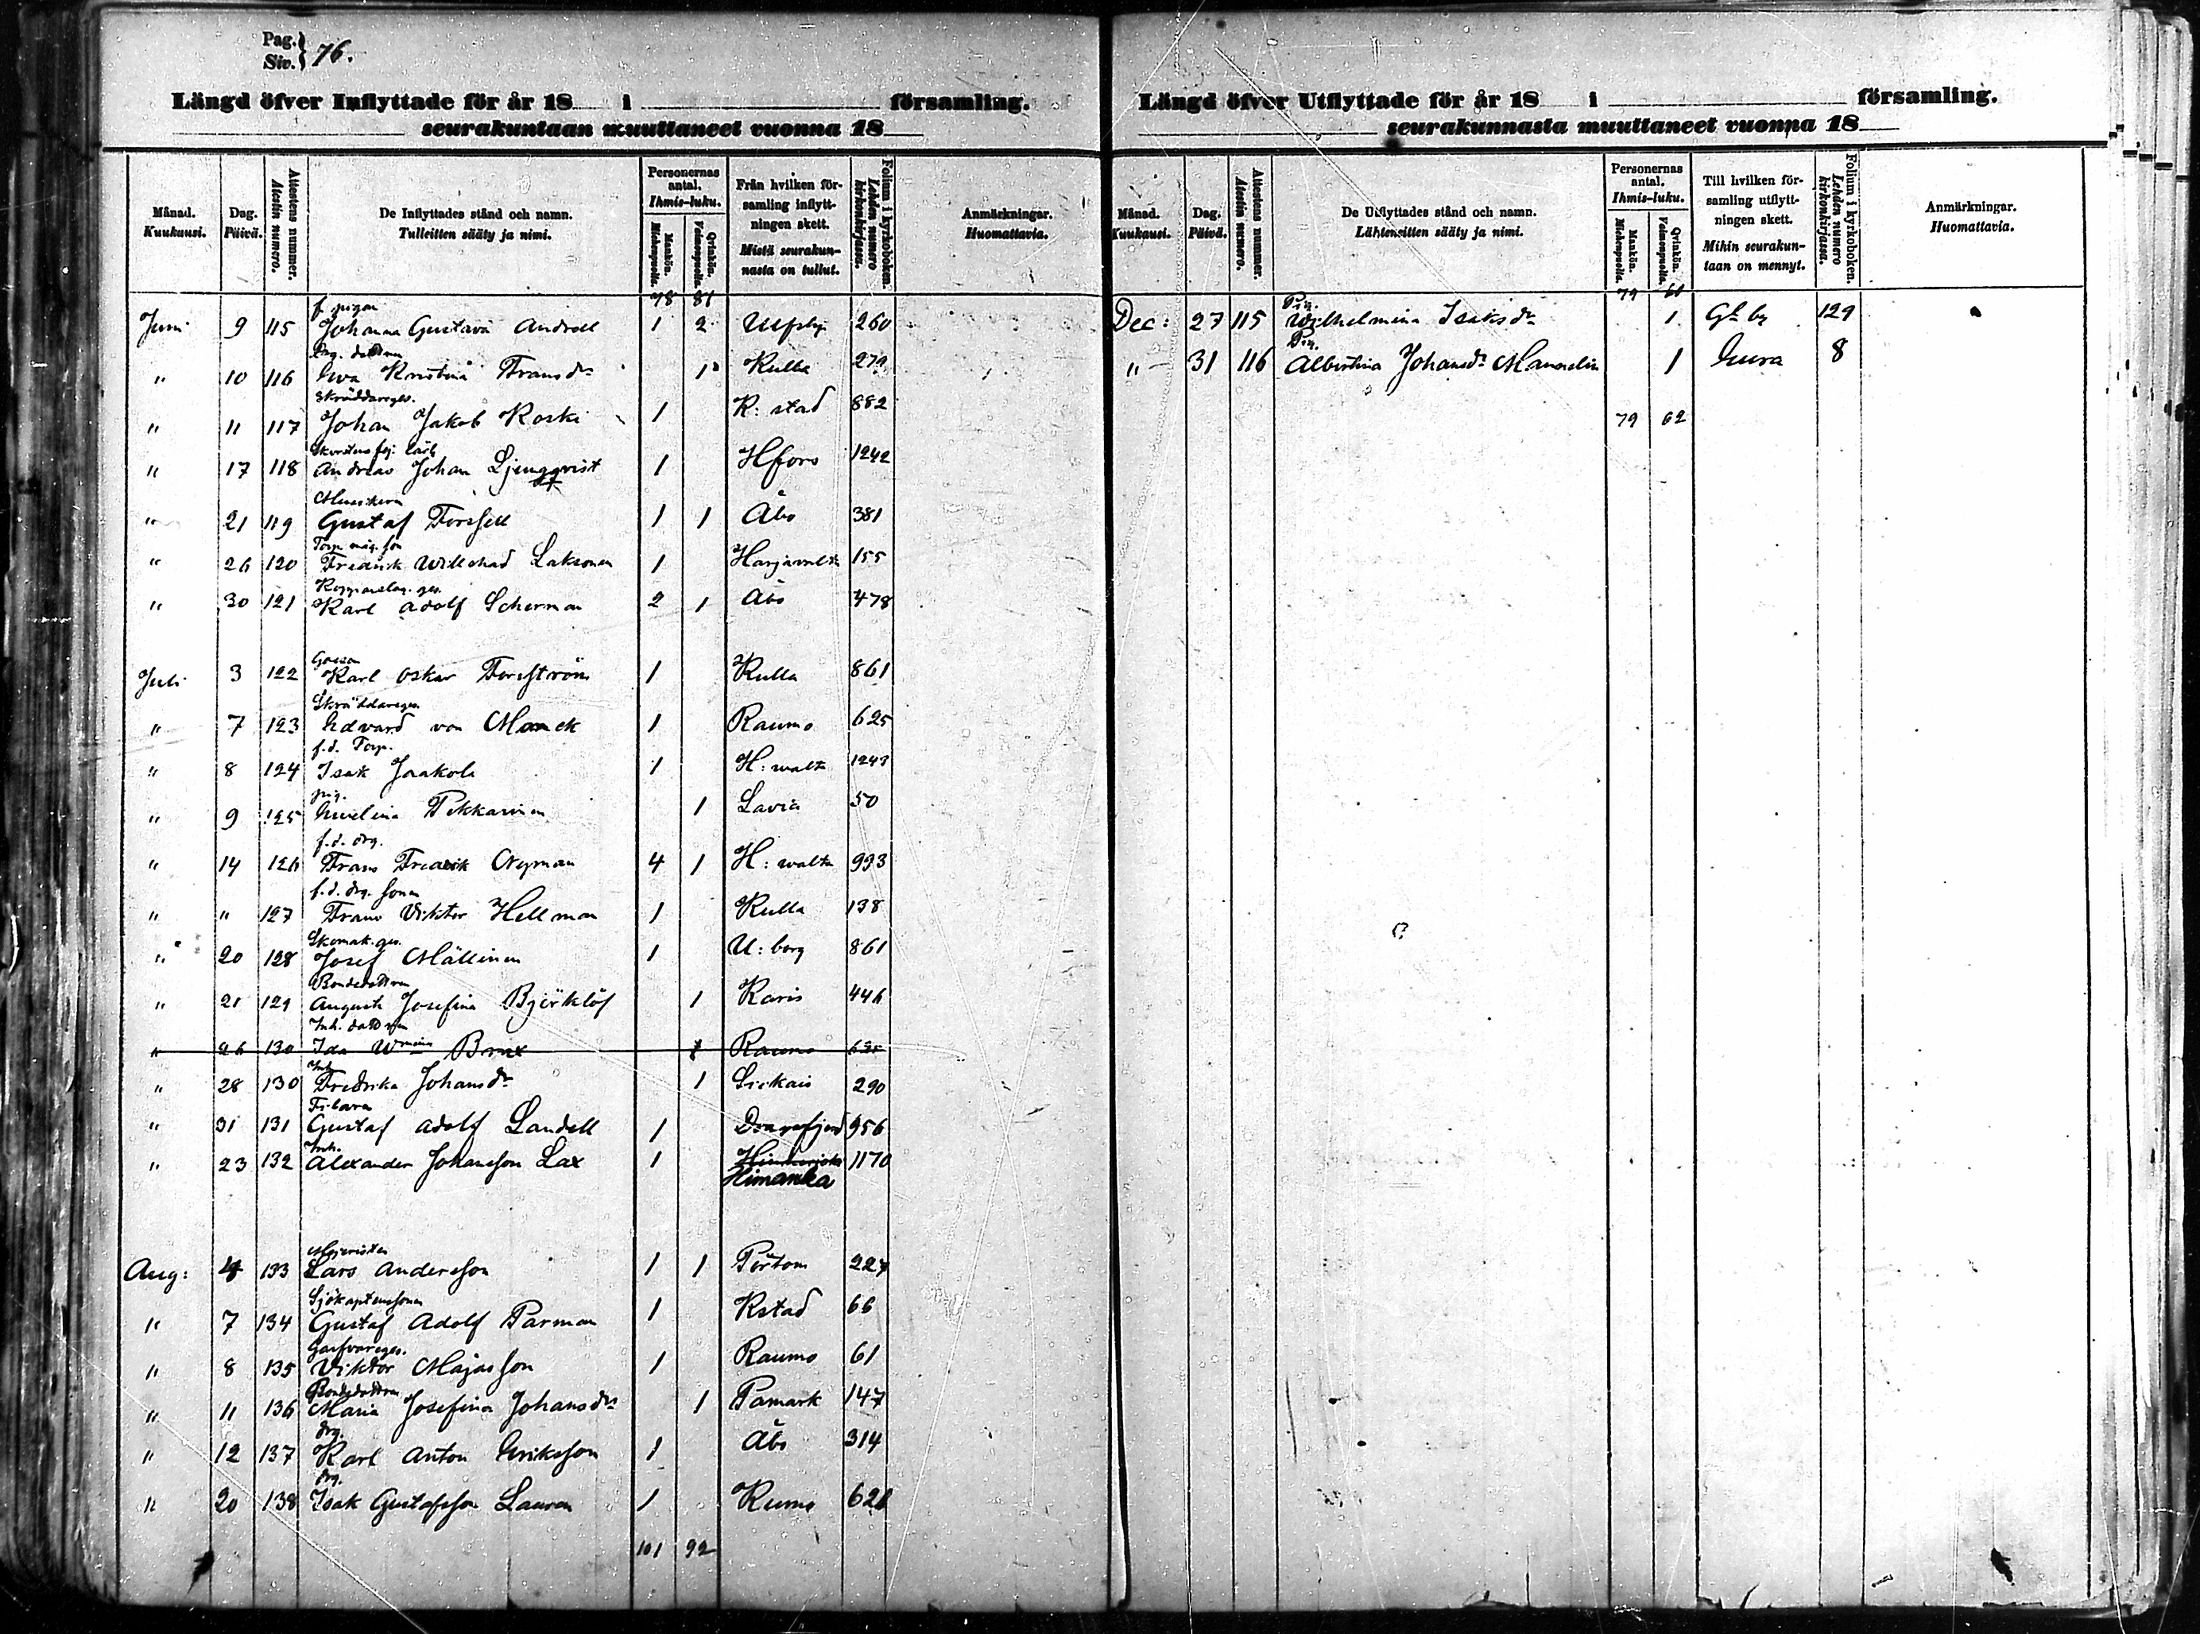 Pag. Siv. } 76.
Längd öfver Inflyttade för år 18 i församling.
seurakuntaan muuttaneet vuonna 18
Månad. Kuukausi.
Dag. Päivä.
Attestens nummer. Atestin numero.
De Inflyttades stånd och namn. Tulleitten sääty ja nimi.
Personernas antal. Ihmis-luku.
Mankön. Miehenpuolia.
Qvinkön. Vaimonpuolia.
Från hvilken församling inflyttningen skett. Mistä seurakunnasta on tullut.
Folium i kyrkoboken. Lehden numero kirkonkirjassa.
Anmärkningar. Huomattavia.
78 81
f. pigan
Juni 9 115 Johanna Gustava Andrell 1 2 Ulfsby 260
dottren
" 10 116 Eva Kristina Fransdr 1 Kulla 279
Skräddareges.
" 11 117 Johan Jakob Koski 1 R: stad 882
Skorstensfej. lärl
" 17 118 Andreas Johan Ljungqvist 1 Hfors 1242
" 21 119 Gustaf Forssell 1 1 Åbo 381
Torp. måg. son
" 26 120 Fredrik Willehad Laksonen 1 Harjavalta 155
Kopparslag. ges.
" 30 121 Karl Adolf Scherman 2 1 Åbo 478
Juli 3 122 Karl Oskar Forsström 1 Kulla 861
Skräddareges.
" 7 123 Edvard von Manck 1 Raumo 625
f.d. Torp.
" 8 124 Isak Jaakola 1 H: walta 1243
pig.
" 9 125 Evelina Pekkarinen 1 Lavia 50
f.d. drg.
" 14 126 Frans Fredrik Nyman 4 1 H: walta 993
f.d. drg. sonen
" " 127 Frans Viktor Hellman 1 Kulla 138
Skomak. ges.
" 20 128 Josef Mällinen 1 U: borg 861
Bondedottren
" 21 129 Augusta Josefina Björklöf 1 Karis 446
Inh. dottren
" 26 130 Ida Wmina Brax 1 Raumo 625
Inh.
" 28 130 Fredrika Johansdr 1 Siikais 290
Filaren
" 31 131 Gustaf Adolf Landell 1 Dragsfjerd 956
Inh.
" 23 132 Alexander Johansson Lax 1 1170
Himanka
Mejeristen
Aug: 4 133 Lars Andersson 1 1 Pörtom 227
Sjökaptenssonen
" 7 134 Gustaf Adolf Parman 1 Kstad 66
Garfvareges.
" 8 135 Viktor Majasson 1 Raumo 61
Bondedottren
" 11 136 Maria Josefina Johansdr 1 Påmark 147
drg.
" 12 137 Karl Anton Eriksson 1 Åbo 314
drg.
" 20 138 Isak Gustafsson Lauren 1 Rumo 621
101 92
Längd öfver Utflyttade för år 18 i församling.
seurakunnasta muuttaneet vuonna 18
Månad. Kuukausi.
Dag. Päivä.
Attestens nummer. Atestin numero.
De Utflyttades stånd och namn. Lähteneitten sääty ja nimi.
Personernas antal. Ihmis-luku.
Mankön. Miehenpuolia.
Qvinkön. Vaimonpuolia.
Till hvilken församling utflyttningen skett. Mihin seurakuntaan on mennyt.
Folium i kyrkoboken. Lehden numero kirkonkirjassa.
Anmärkningar. Huomattavia.
79 60
Pig.
Dec: 27 115 Wilhelmina Isaksdr 1 Gl by 129
Pig.
" 31 116 Albertina Johansdr Mannelin 1 Eura 8
79 62